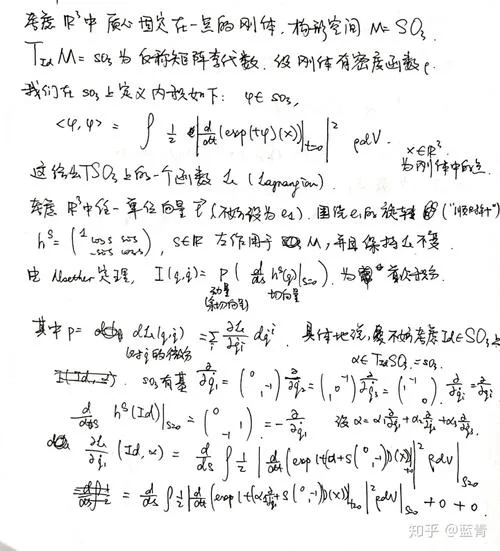 考虑 ℝ³ 中质心固定在一点的刚体. 构形空间 M=SO₃.
T_Id M = so₃ 为反称矩阵李代数. 设刚体有密度函数 ρ.
我们在 so₃ 上定义内积如下: φ∈so₃,
<φ,φ> = ∫ ½ |d/dt(exp(tφ)(x))|_{t=0}|² ρdV.
x∈ℝ³. 为刚体中的点
这给出TSO₃上的一个函数 L (Lagrangian).
考虑 ℝ³中任一单位向量 e⃗ (不妨设为e₁). 围绕e₁的旋转 ("顺时针")
h^S = (1 cos s sin s -sin s cos s), s∈ℝ 左作用于 M, 并且保持L不变.
由 Noether 定理, I(q,q̇) = p( d/ds h^s(q)|_{s=0} ). 为首次积分
动量 (余切向量) 切向量
其中 p= dL(q,q̇) = Σ ∂L/∂q̇ᵢ dqⁱ. 具体地说, 不妨考虑 Id∈SO₃
对q̇的微分 α∈T_Id SO₃=so₃.
so₃有基 ∂/∂q₁ = (0 1 -1) ∂/∂q₂ = (0 -1 1) ∂/∂q₃ = (1 -1 0).
d/ds h^s(Id)|_{s=0} = (0 1 -1) = -∂/∂q₁ 设 α = α₁ ∂/∂q₁ + α₂ ∂/∂q₂ + α₃ ∂/∂q₃.
∂L/∂q̇₁ (Id, α) = d/ds ∫ ½ | d/dt (exp(t(α+s(0 1 -1)))(x))|_{t=0} |² ρdV |_{s=0}
= d/ds ∫ ½ | d/dt (exp(t(α₁ ∂/∂q₁ + s(0 1 -1)))(x))|_{t=0} |² ρdV |_{s=0} + 0 + 0.
知乎 @蓝青